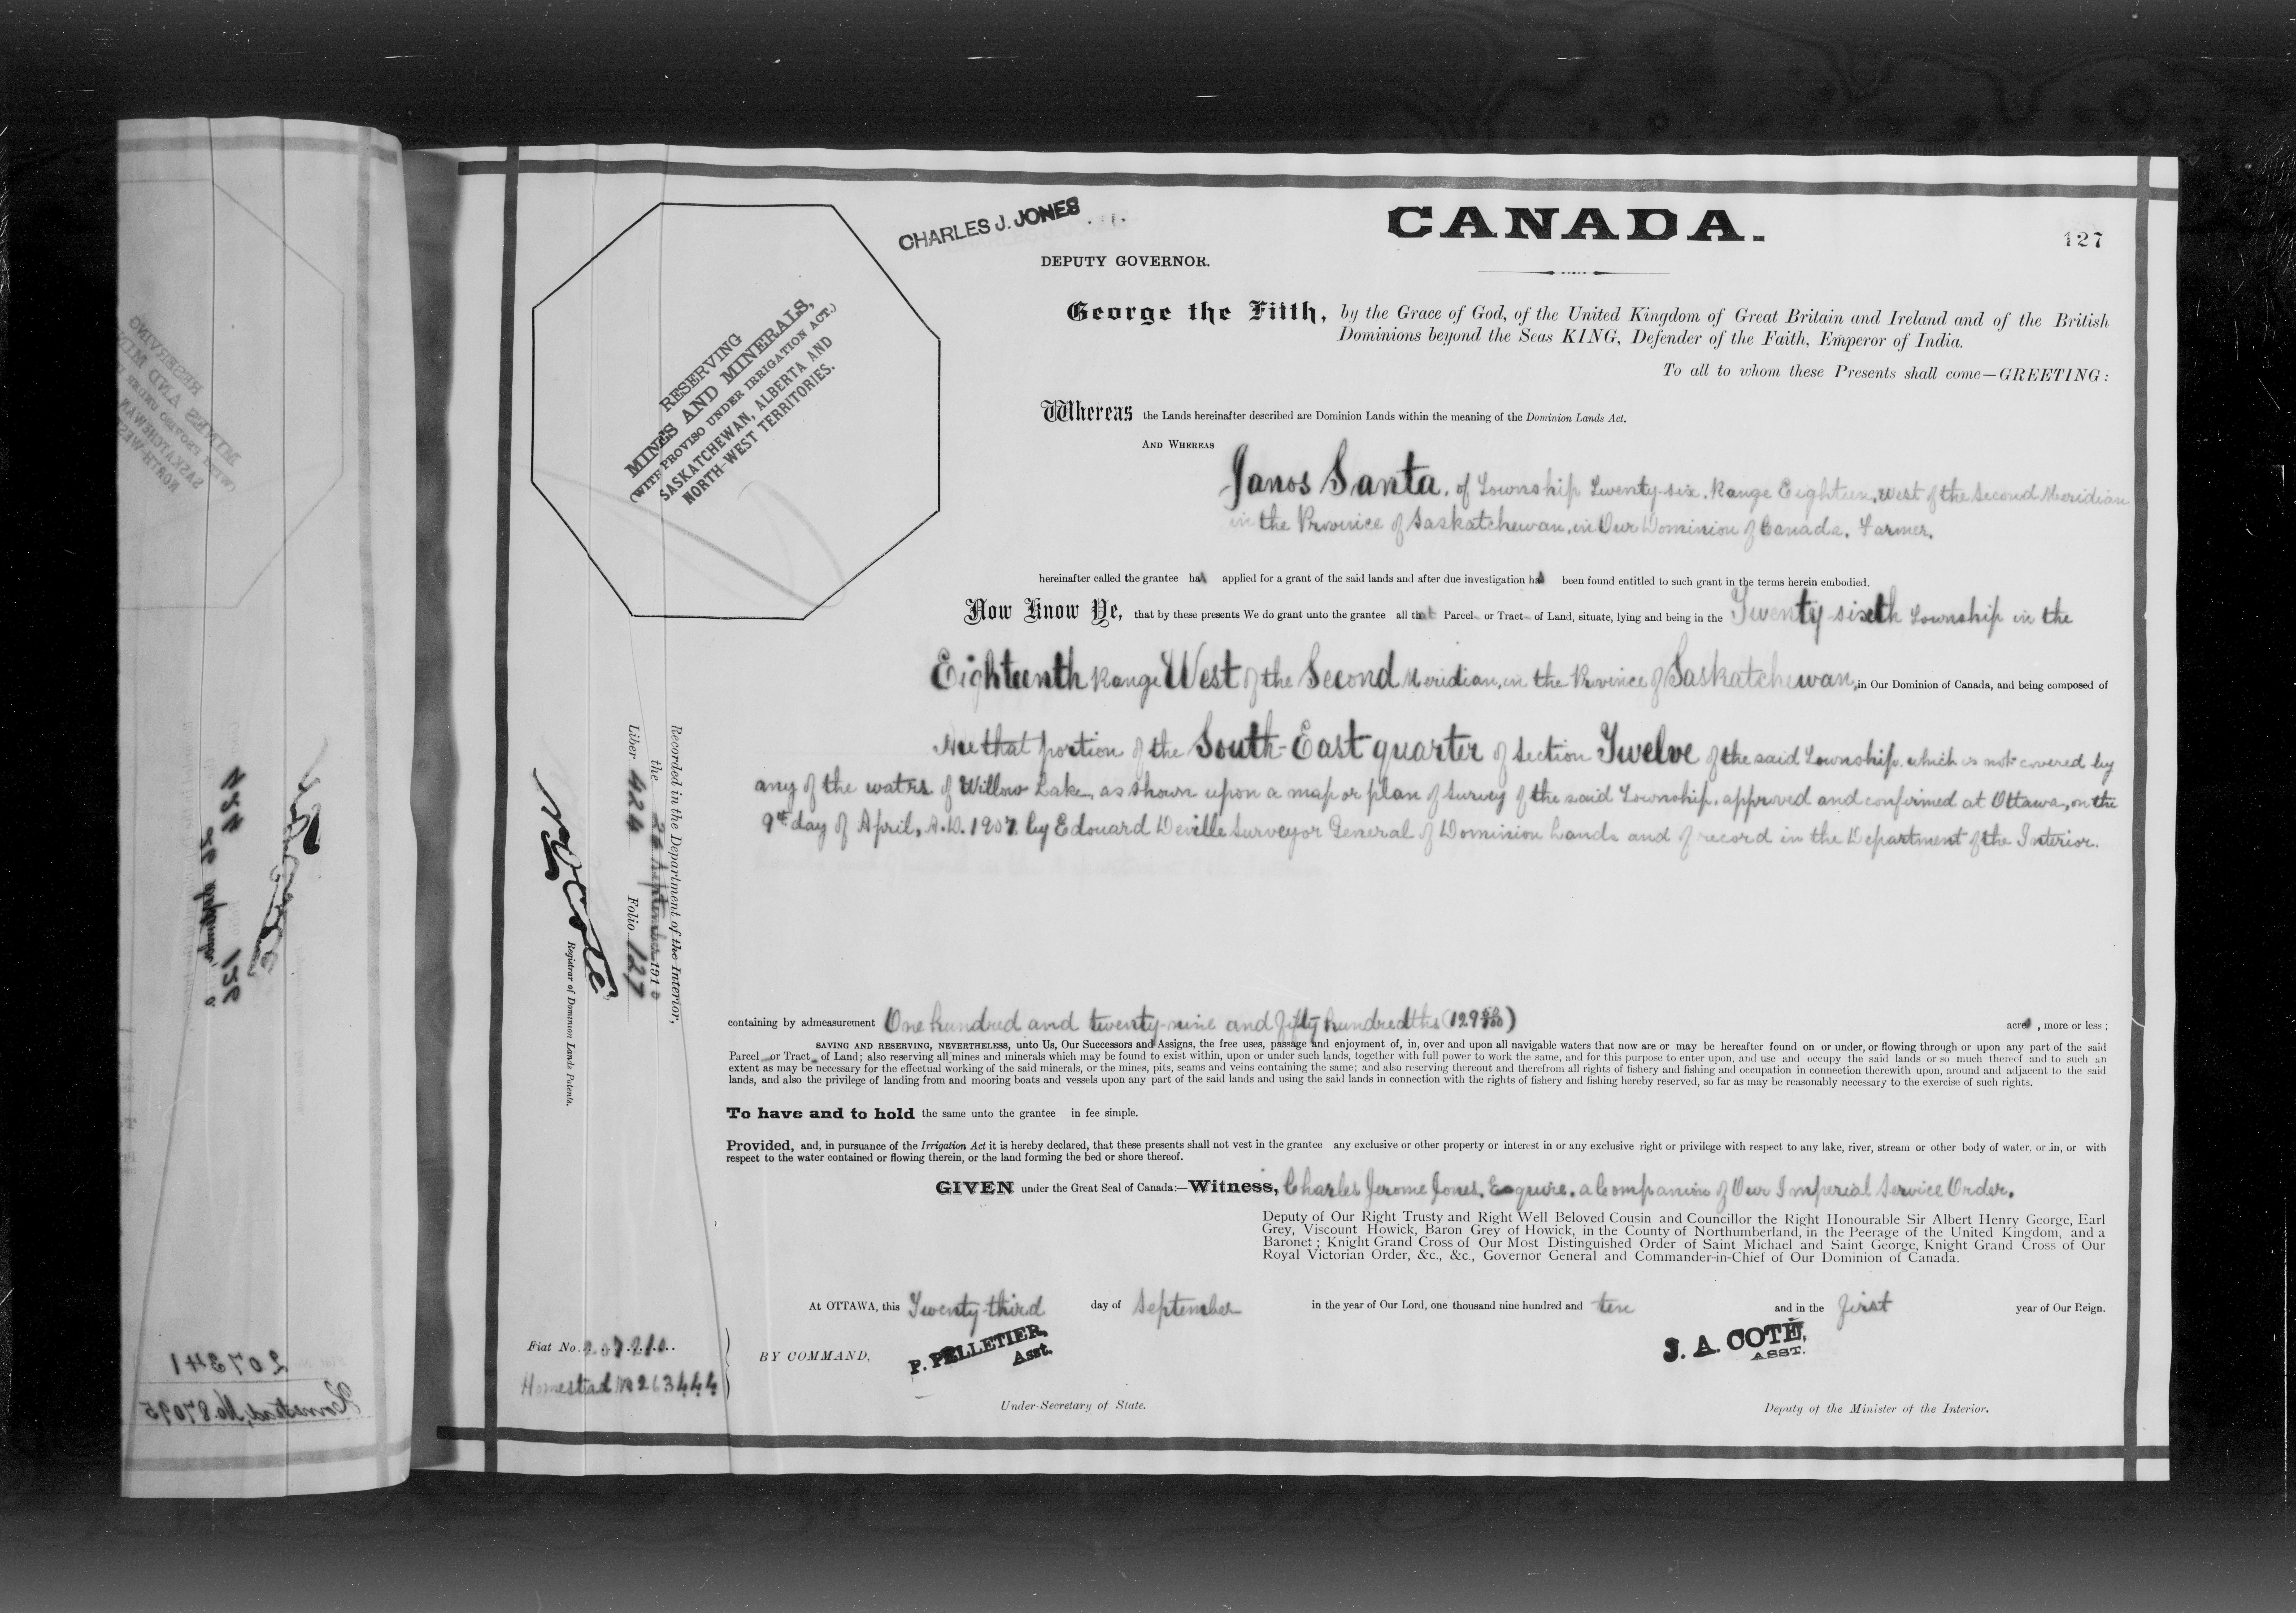 CANADA.
127
CHARLES J. JONES
DEPUTY GOVERNOR.
RESERVING
MINES AND MINERALS,
(WITH PROVISO UNDER IRRIGATION ACT.)
SASKATCHEWAN, ALBERTA AND
NORTH-WEST TERRITORIES.
George the Fifth, by the Grace of God, of the United Kingdom of Great Britain and Ireland and of the British
Dominions beyond the Seas KING, Defender of the Faith, Emperor of India.
To all to whom these Presents shall come—GREETING:
Whereas the Lands hereinafter described are Dominion Lands within the meaning of the Dominion Lands Act.
AND WHEREAS
Janos Santa, of Township Twenty-six, Range Eighteen, West of the Second Meridian
in the Province of Saskatchewan, in Our Dominion of Canada, Farmer,
hereinafter called the grantee has applied for a grant of the said lands and after due investigation has been found entitled to such grant in the terms herein embodied.
Now Know Ye, that by these presents We do grant unto the grantee all that Parcel or Tract of Land, situate, lying and being in the Twenty-sixth Township in the
Eighteenth Range West of the Second Meridian, in the Province of Saskatchewan, in Our Dominion of Canada, and being composed of
All that portion of the South-East quarter of Section Twelve of the said Township, which is not covered by
any of the waters of Willow Lake, as shown upon a map or plan of survey of the said Township, approved and confirmed at Ottawa, on the
9th day of April, A.D. 1907 by Edouard Deville Surveyor General of Dominion Lands and of record in the Department of the Interior.
containing by admeasurement One hundred and twenty-nine and fifty hundredths (129 50/100) acres, more or less;
SAVING AND RESERVING, NEVERTHELESS, unto Us, Our Successors and Assigns, the free uses, passage and enjoyment of, in, over and upon all navigable waters that now are or may be hereafter found on or under, or flowing through or upon any part of the said
Parcel or Tract of Land; also reserving all mines and minerals which may be found to exist within, upon or under such lands, together with full power to work the same, and for this purpose to enter upon, and use and occupy the said lands or so much thereof and to such an
extent as may be necessary for the effectual working of the said minerals, or the mines, pits, seams and veins containing the same; and also reserving thereout and therefrom all rights of fishery and fishing and occupation in connection therewith upon, around and adjacent to the said
lands, and also the privilege of landing from and mooring boats and vessels upon any part of the said lands and using the said lands in connection with the rights of fishery and fishing hereby reserved, so far as may be reasonably necessary to the exercise of such rights.
To have and to hold the same unto the grantee in fee simple.
Provided, and, in pursuance of the Irrigation Act it is hereby declared, that these presents shall not vest in the grantee any exclusive or other property or interest in or any exclusive right or privilege with respect to any lake, river, stream or other body of water, or in, or with
respect to the water contained or flowing therein, or the land forming the bed or shore thereof.
GIVEN under the Great Seal of Canada:—Witness, Charles Jerome Jones, Esquire, a Companion of Our Imperial Service Order.
Deputy of Our Right Trusty and Right Well Beloved Cousin and Councillor the Right Honourable Sir Albert Henry George, Earl
Grey, Viscount Howick, Baron Grey of Howick, in the County of Northumberland, in the Peerage of the United Kingdom, and a
Baronet; Knight Grand Cross of Our Most Distinguished Order of Saint Michael and Saint George, Knight Grand Cross of Our
Royal Victorian Order, &c., &c., Governor General and Commander-in-Chief of Our Dominion of Canada.
At OTTAWA, this Twenty-third day of September in the year of Our Lord, one thousand nine hundred and ten and in the first year of Our Reign.
BY COMMAND,
P. PELLETIER,
Asst.
Under-Secretary of State.
J. A. COTÉ,
ASST.
Deputy of the Minister of the Interior.
Recorded in the Department of the Interior,
the 26 September 1910
Liber 424 Folio 127
N O Coté
Registrar of Dominion Lands Patents.
Fiat No. 207210
Homestead No 263444
207341
Homestead, No. 87095